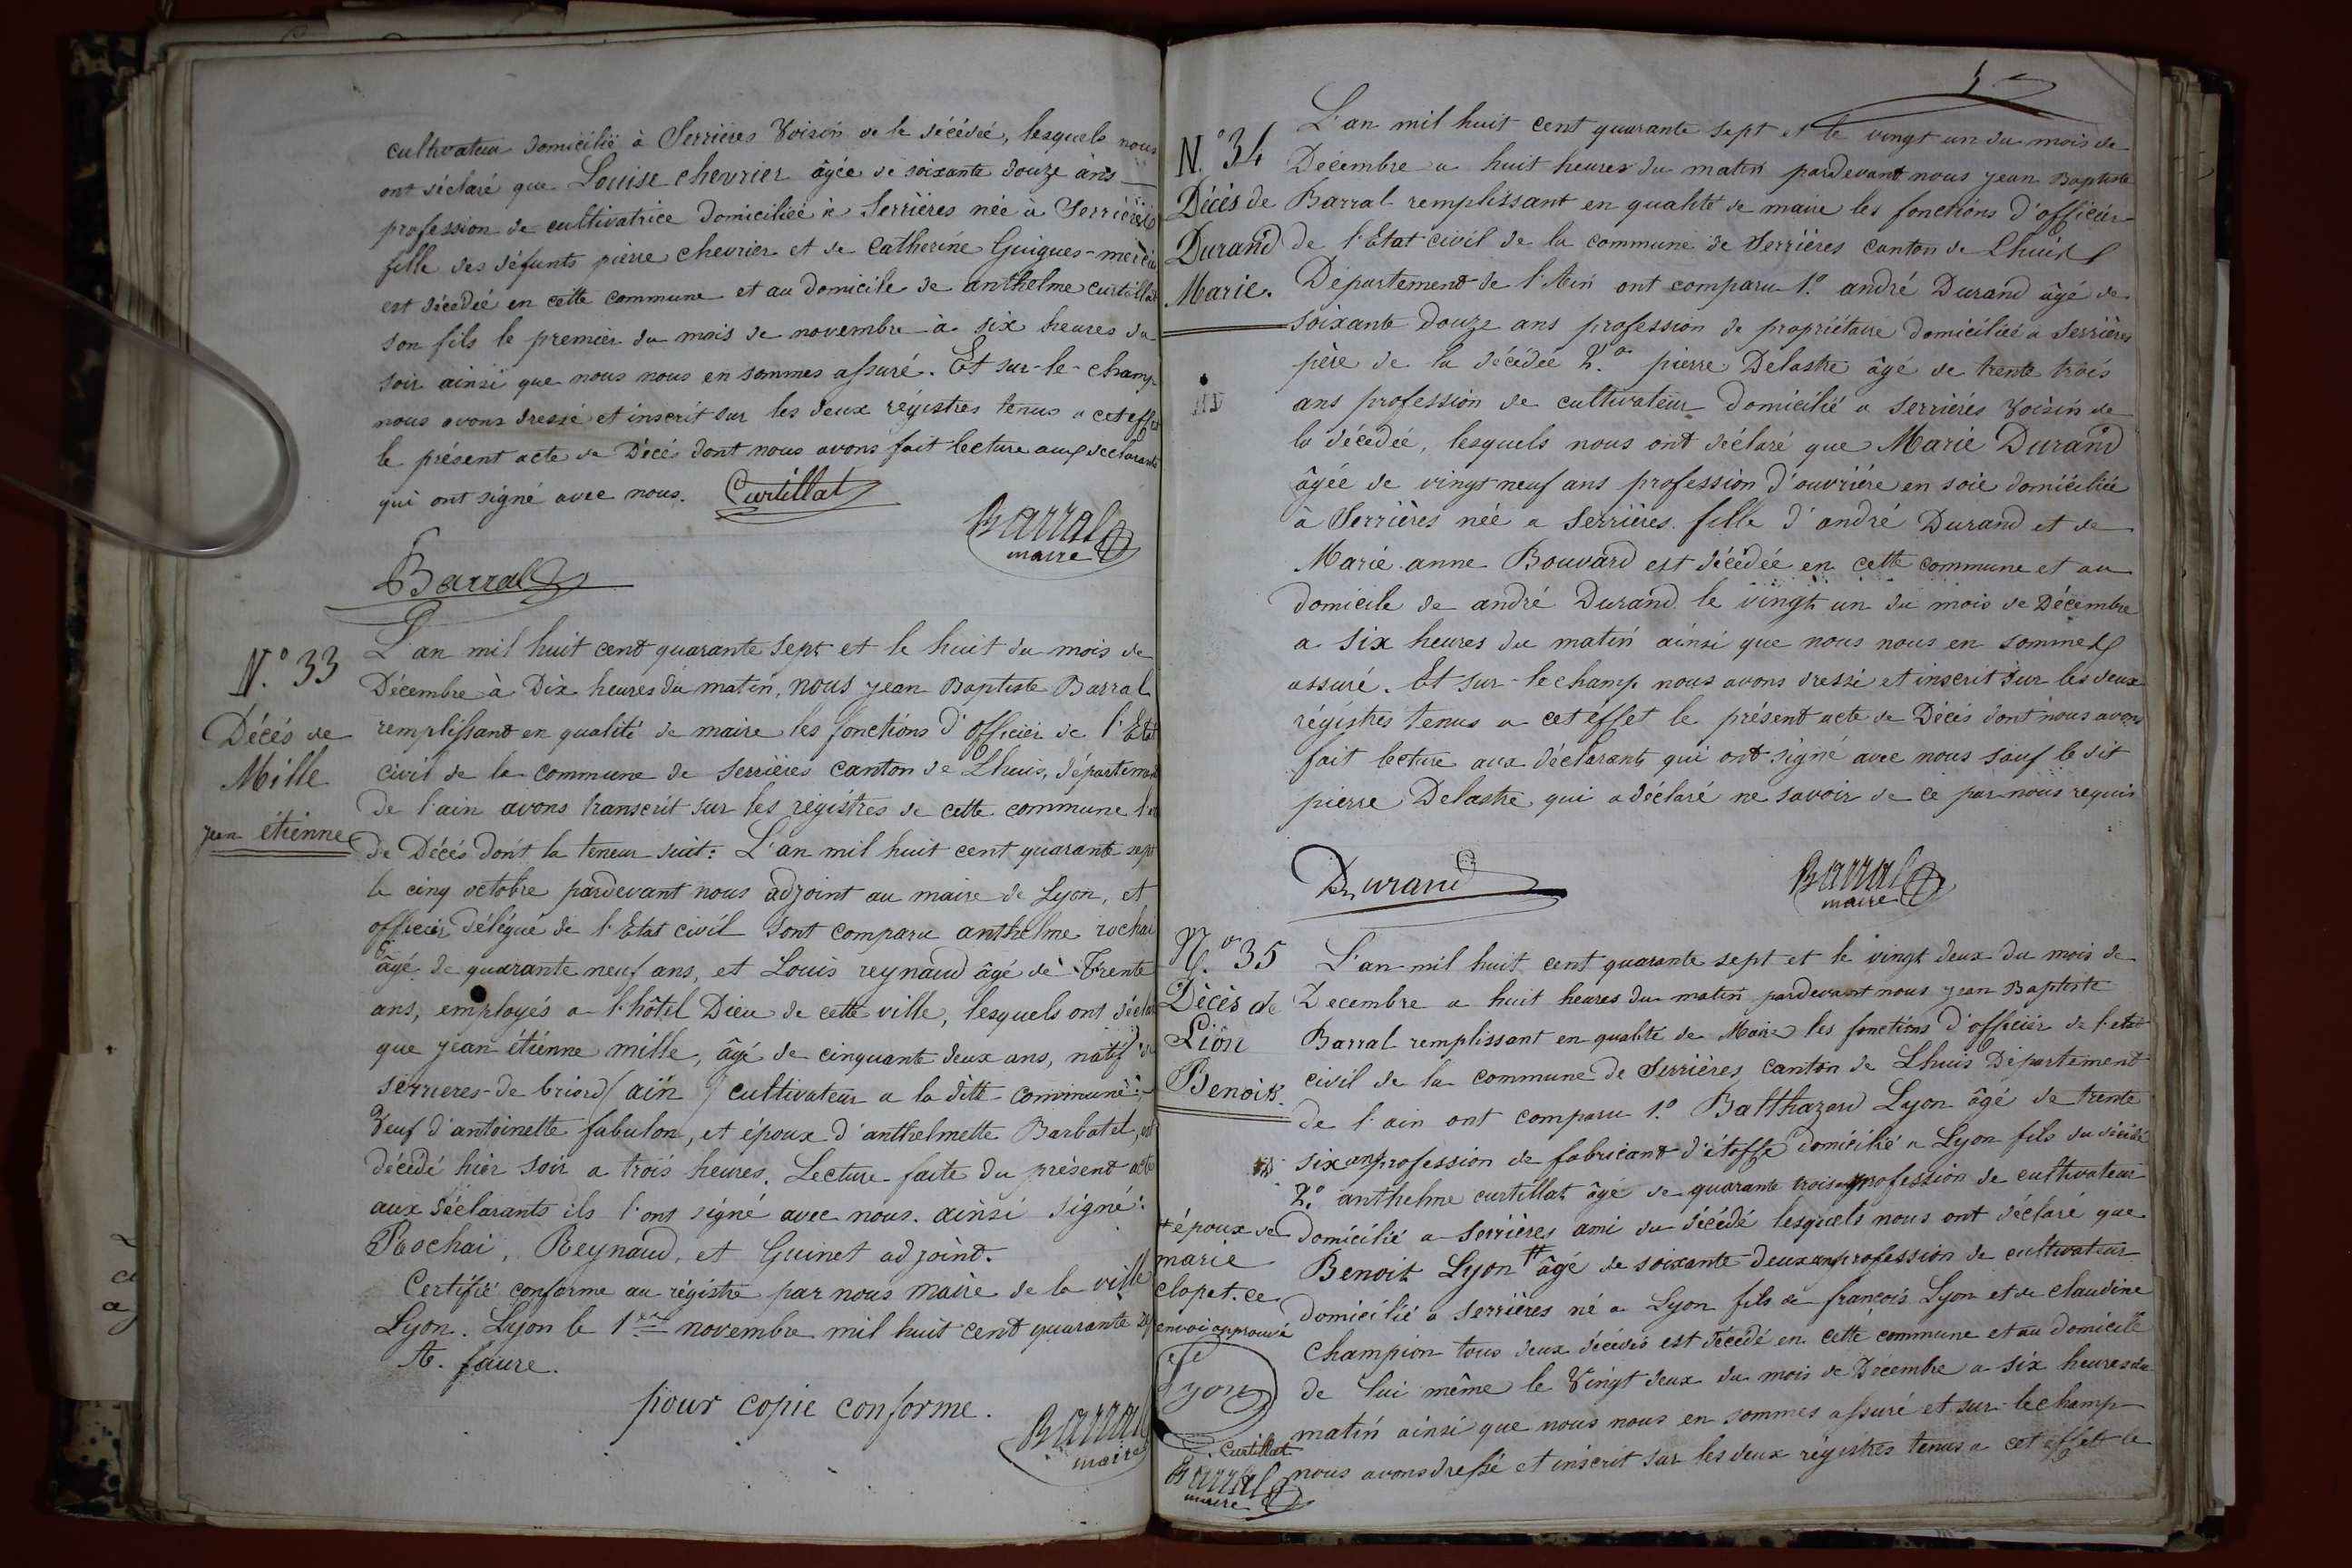 cultivateur domicilié à Serrières Voisin de la décédée, lesquels nous
ont déclaré que Louise chevrier âgée de soixante douze ans
profession de cultivatrice domiciliée à Serrières née à Serrières
fille des défunts pierre chevrier et de Catherine Guigues-mercier
est décédée en cette commune et au domicile de anthelme curtillat
son fils le premier du mois de novembre à six heures du
soir ainsi que nous nous en sommes assuré. Et sur-le-champ
nous avons dressé et inscrit sur les deux régistres tenus a cet effet
le présent acte de Décés dont nous avons fait lecture aux déclarants
qui ont signé avec nous. Curtillat
Barral
maire
Barral
N.° 33
Décés de
Mille
jean étienne
L'an mil huit cent quarante sept et le huit du mois de
Décembre à Dix heures du matin, nous jean Baptiste Barral
remplissant en qualité de maire les fonctions d'officier de l'Etat
civil de la commune de serrières canton de Lhuis, département
de l'ain avons transcrit sur les régistres de cette commune
de Décés dont la teneur suit: L'an mil huit cent quarante sept
le cinq octobre pardevant nous adjoint au maire de Lyon, et
officier délégué de l'Etat civil sont comparu anthelme rochai
âgé de quarante neuf ans, et Louis reynaud âgé de Trente
ans, employés a l'hôtel Dieu de cette ville, lesquels ont déclaré
que jean étienne mille, âgé de cinquante deux ans, natif de
serrieres-de briord (ain) cultivateur a la ditte commune
Veuf d'antoinette fabulon, et époux d'anthelmette Barbatet, est
décédé hier soir a trois heures. Lecture faite du présent acte
aux déclarants ils l'ont signé avec nous. ainsi signé:
Rochai, Reynaud, et Guinet adjoint.
Certifié conforme au régistre par nous maire de la ville
Lyon. Lyon le 1er novembre mil huit cent quarante sept
faure.
pour copie conforme.
Barral
maire
N.° 34
Décés de
Durand
Marie.
L'an mil huit cent quarante sept et le vingt un du mois de
Décembre a huit heures du matin pardevant nous jean Baptiste
Barral remplissant en qualité de maire les fonctions d'officier
de l'Etat civil de la commune de Serrières canton de Lhuis
Département de l'Ain ont comparu 1.° andré Durand âgé de
soixante douze ans profession de propriétaire domicilié a serrières
père de la décédée 2.° pierre Delastre âgé de trente trois
ans profession de cultivateur domicilié a serrières Voisin de
la décédée, lesquels nous ont déclaré que Marie Durand
âgée de vingt neuf ans profession d'ouvrière en soie domiciliée
à Serrières née a serrières. fille d'andré Durand et de
Marie anne Bouvard est décédée en cette commune et au
domicile de andré Durand le vingt un du mois de Décembre
a six heures du matin ainsi que nous nous en sommes
assuré. Et sur-le champ nous avons dressé et inscrit sur les deux
régistres tenus a cet effet le présent acte de Décés dont nous avons
fait lecture aux déclarants qui ont signé avec nous sauf le dit
pierre Delastre qui a déclaré ne savoir de ce par nous requis
Durand
Barral
maire
N.° 35
Décès de
Lion
Benoit.
L'an mil huit cent quarante sept et le vingt deux du mois de
Decembre a huit heures du matin pardevant nous jean Baptiste
Barral remplissant en qualité de Maire les fonctions d'officier de l'etat
civil de la commune de Serrières canton de Lhuis Département
de l'ain ont comparu 1.° Balthazard Lyon âgé de trente
six ans profession de fabricant d'étoffe domicilié a Lyon fils du décédé
2.° anthelme curtillat âgé de quarante trois ans profession de cultivateur
domicilié a serrières ami du décédé lesquels nous ont déclaré que
Benoit Lyon # âgé de soixante deux ans profession de cultivateur
domicilié a serrières né a Lyon fils de françois Lyon et de claudine
Champion tous deux décédés est décédé en cette commune et au domicile
de lui même le Vingt deux du mois de Décembre a six heures du
matin ainsi que nous nous en sommes assuré et sur-le champ
nous avons dressé et inscrit sur les deux régistres tenus a cet effet le
# époux de
marie
clapet. ce
envoi approuvé
Lyon
Curtillat
Barral
maire